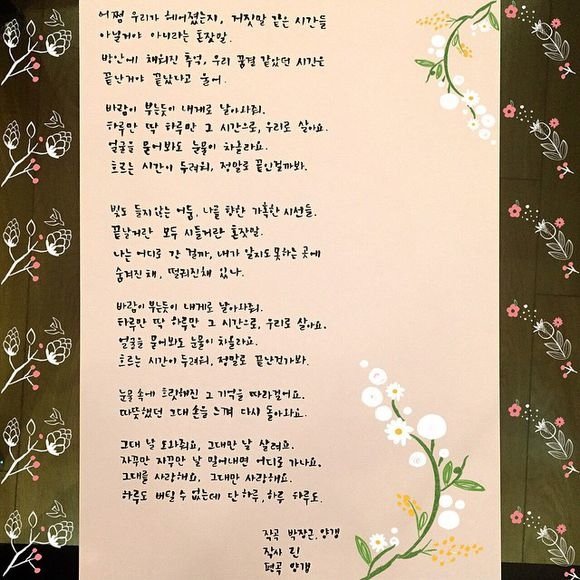 어쩜 우리가 헤어졌는지, 거짓말 같은 시간들
아닐거야 아니라는 혼잣말.
방안에 채워진 추억, 우리 꿈결 같았던 시간은
끝난거야 끝났다고 울어.
바람이 부는듯이 내게로 날아와줘.
하루만 딱 하루만 그 시간으로, 우리로 살아요.
얼굴을 묻어봐도 눈물이 차올라요.
흐르는 시간이 두려워, 정말로 끝인걸까봐.
빛도 들지 않는 어둠, 나를 향한 가혹한 시선들.
끝날거란 모두 시들거란 혼잣말.
나는 어디로 간 걸까, 내가 알지도 못하는 곳에
숨겨진채, 떨궈진채 있나.
바람이 부는듯이 내게로 날아와줘.
하루만 딱 하루만 그 시간으로, 우리로 살아요.
얼굴을 묻어봐도 눈물이 차올라요.
흐르는 시간이 두려워, 정말로 끝난건가봐.
눈물 속에 또렷해진 그 기억을 따라걸어요.
따뜻했던 그대 손을 느껴 다시 돌아와요.
그대 날 도와줘요, 그대만 날 살려요.
자꾸만 자꾸만 날 밀어내면 어디로 가나요.
그대를 사랑해요, 그대만 사랑해요.
하루도 버틸 수 없는데 단 하루, 하루 하루도.
작곡 박장근, 양갱
작사 린
편곡 양갱